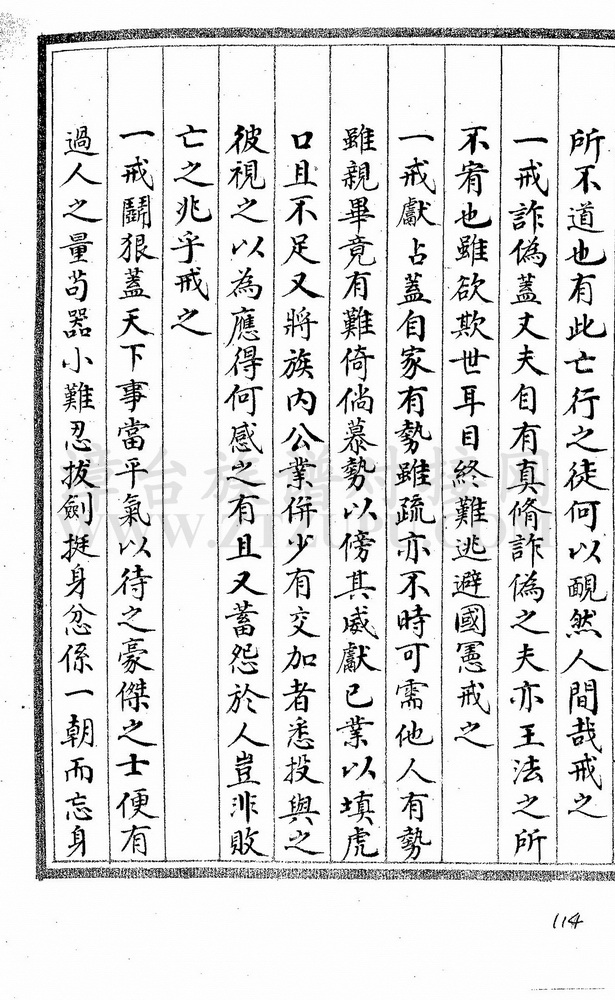 所不道也有此亡行之徒何以靦然人間哉戒之
一戒詐偽蓋丈夫自有真脩詐偽之夫亦王法之所
不宥也雖欲欺世耳目終難逃避國憲戒之
一戒獻占蓋自家有勢雖疏亦不時可需他人有勢
雖親畢竟有難倚倘慕勢以傍其威獻已業以填虎
口且不足又將族內公業併少有交加者悉投與之
彼視之以為應得何感之有且又蓄怨於人豈非敗
亡之兆乎戒之
一戒鬪狠蓋天下事當平氣以待之豪傑之士便有
過人之量苟器小難忍拔劍挺身忿係一朝而忘身
漳台族譜对接网
WWW.ZTZUPU.COM
114